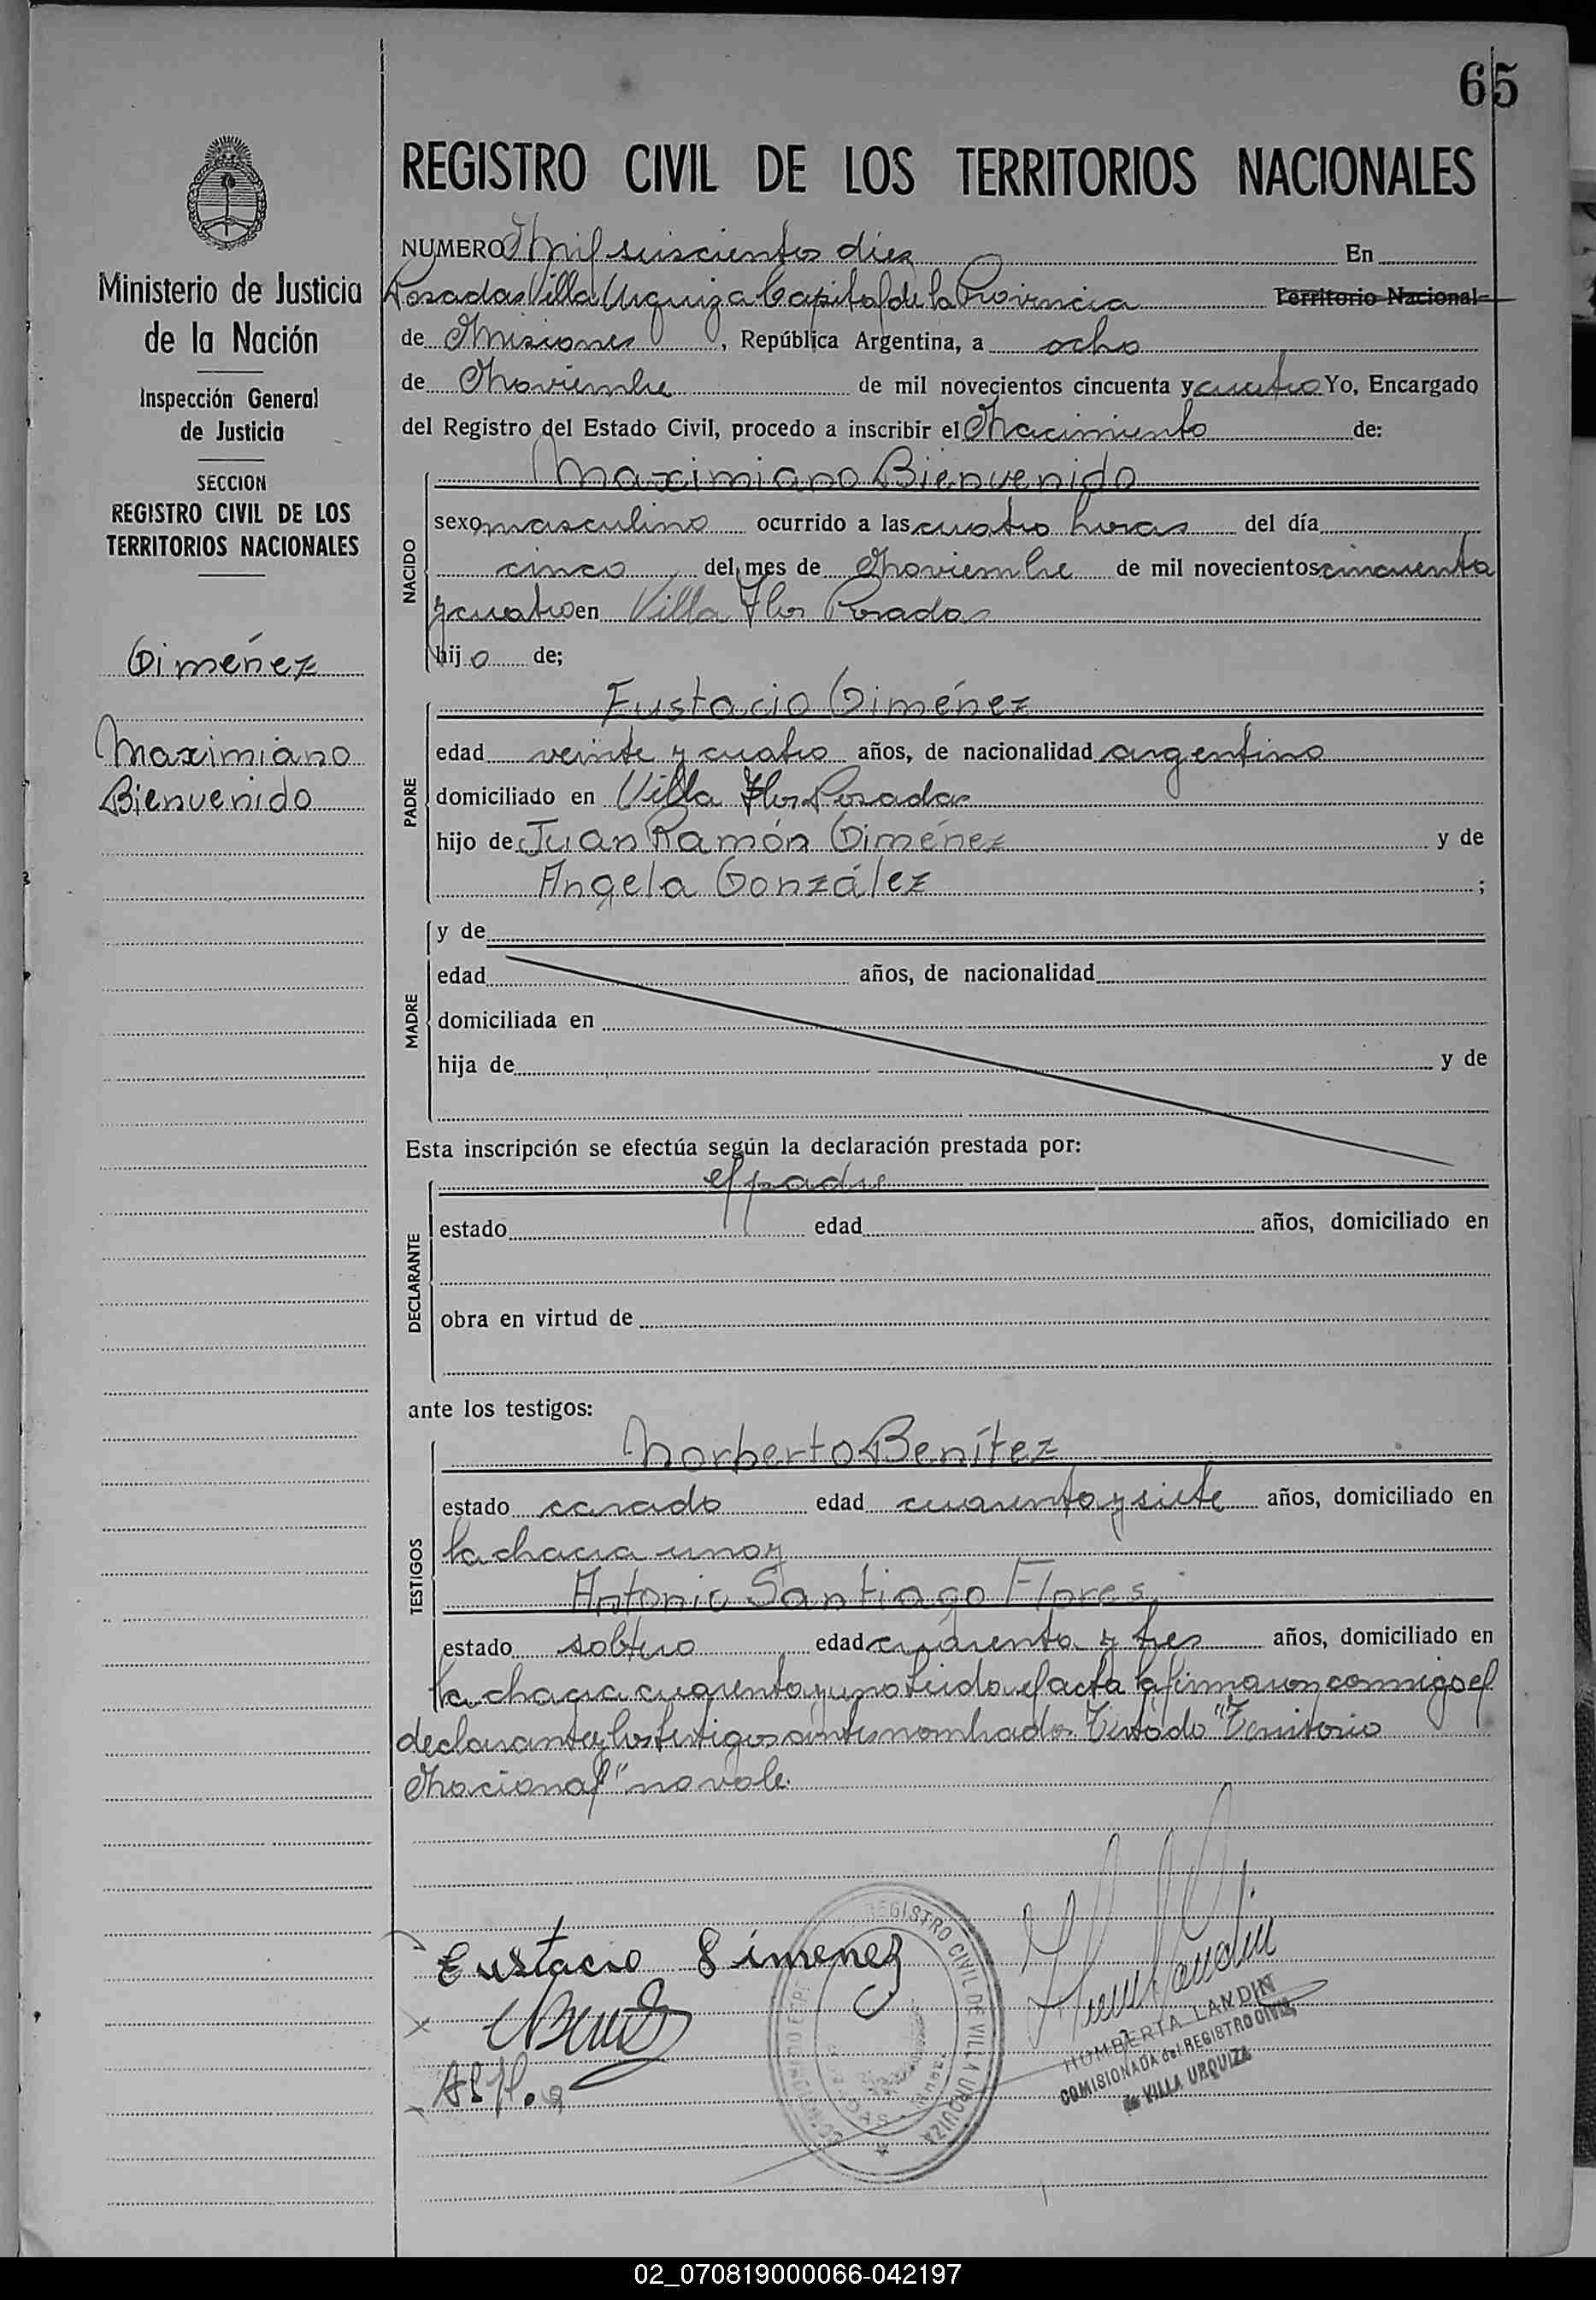 65
REGISTRO CIVIL DE LOS TERRITORIOS NACIONALES
Ministerio de Justicia
de la Nación
Inspección General
de Justicia
SECCION
REGISTRO CIVIL DE LOS
TERRITORIOS NACIONALES
Giménez
Maximiano
Bienvenido
NUMERO Mil seiscientos diez En
Posadas Villa Urquiza Capital de la Provincia Territorio Nacional
de Misiones, República Argentina, a ocho
de Noviembre de mil novecientos cincuenta y cuatro Yo, Encargado
del Registro del Estado Civil, procedo a inscribir el Nacimiento de:
NACIDO
Maximiano Bienvenido
sexo masculino ocurrido a las cuatro horas del día
cinco del mes de Noviembre de mil novecientos cincuenta
y cuatro en Villa Flor Posadas
hijo de;
PADRE
Eustacio Giménez
edad veinte y cuatro años, de nacionalidad argentino
domiciliado en Villa Flor Posadas
hijo de Juan Ramón Giménez y de
Angela González ;
MADRE
y de
edad años, de nacionalidad
domiciliada en
hija de y de
Esta inscripción se efectúa según la declaración prestada por:
DECLARANTE
el padre
estado edad años, domiciliado en
obra en virtud de
ante los testigos:
TESTIGOS
Norberto Benítez
estado casado edad cuarenta y siete años, domiciliado en
la chacra uno y
Antonio Santiago Flores
estado soltero edad cuarenta y tres años, domiciliado en
la chacra cuarenta y uno Leida el acta la firmaron conmigo el
declarante y los testigos antes nombrados. Testado "Territorio
Nacional" no vale.
Eustacio Gimenez
REGISTRO CIVIL DE VILLA URQUIZA
HUMBERTA LANDIN
COMISIONADA del REGISTRO CIVIL
de VILLA URQUIZA
02_070819000066-042197